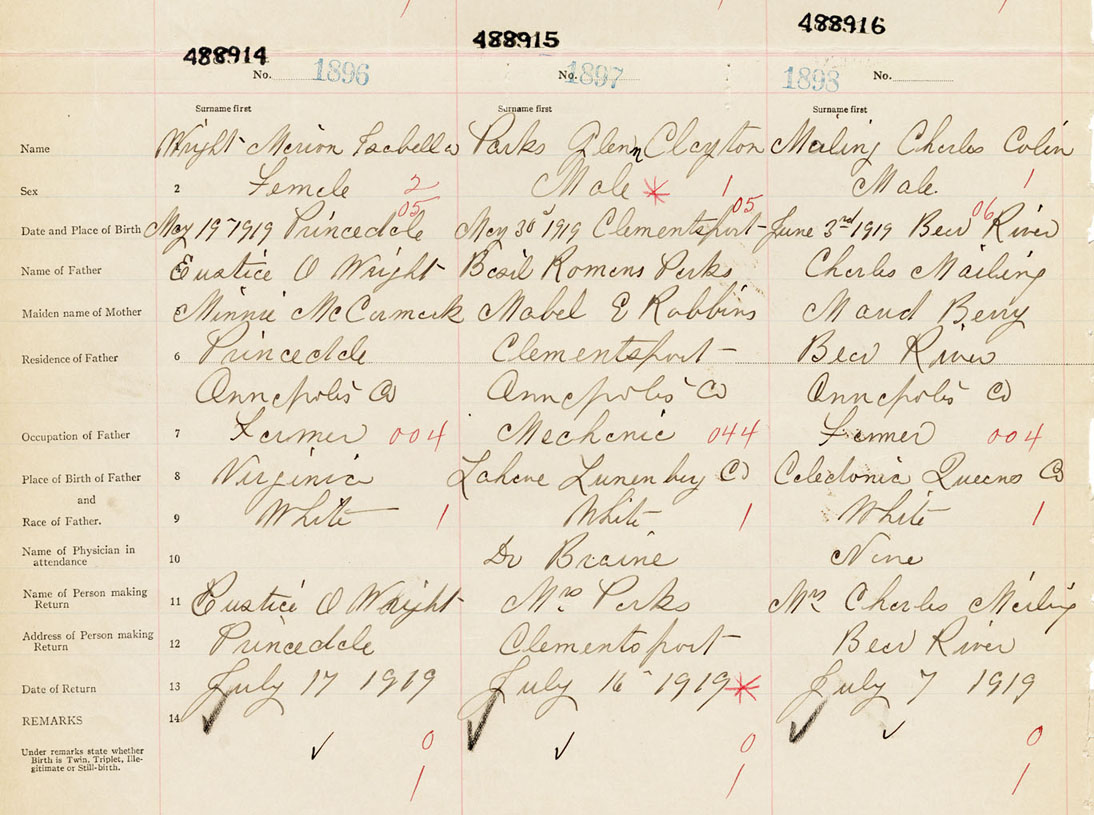 488914 488915 488916
No. 1896 No. 1897 1898 No.
Surname first Surname first Surname first
Name Wright Merion Isabella Parks Glenn Clayton Mailing Charles Colin
Sex 2 Female 2 Male * 1 Male 1
05 05 06
Date and Place of Birth May 19 1919 Princedale May 30 1919 Clementsport June 3rd 1919 Bear River
Name of Father Eustice O Wright Basil Romans Parks Charles Mailing
Maiden name of Mother 5 Minnie McCormack Mabel E Robbins Maud Berry
Residence of Father 6 Princedale Clementsport Bear River
Annapolis Co Annapolis Co Annapolis Co
Occupation of Father 7 Farmer 004 Mechanic 044 Farmer 004
Place of Birth of Father 8 Virginia Lahave Lunenburg Co Caledonia Queens Co
and
Race of Father. 9 White 1 White 1 White 1
Name of Physician in
attendance 10 Dr Braine None
Name of Person making
Return 11 Eustice O Wright Mrs Parks Mrs Charles Mailing
Address of Person making
Return 12 Princedale Clementsport Bear River
Date of Return 13 July 17 1919 July 16 1919 * July 7 1919
REMARKS 14
Under remarks state whether
Birth is Twin, Triplet, Ille-
gitimate or Still-birth.
0 0 0
1 1 1